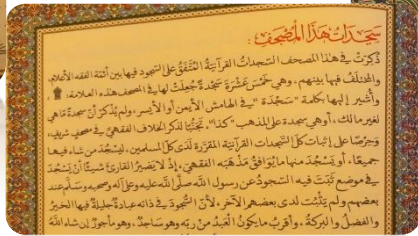 سَجَدَاتُ هَذَا المُصْحَفِ :
ذُكِرَتْ في هٰذا المصحف السَّجداتُ القرآنيّةُ المُتَّفَقُ على السّجود فيها بين أئمّة الفقه الأعلام،
والمُختَلَفُ فيها بينهم، وهي خَمْسَ عَشْرَةَ سَجْدةً جُعِلَتْ لها في المصحف هذه العلامة: ۩،
وأُشير إليها بكلمة "سَجْدَة" في الهامش الأيمن أو الأيسر،ولم يُذكر أنّ سجدةً ما هي
لغير مالك، أو هي سجدة على المذهب "كذا"، تجنّبًا لذكر الخلاف الفقهيّ في مصحفٍ شريف،
وحرصًا على إثبات كلّ السَّجدات القرآنيّة المقرّرة لدى كلّ المسلمين، ليسْجُد من شاء فيها
جميعًا، أو يَسْجُدَ منها ما يُوافقُ مَذْهَبَه الفقهيّ، إذْ لا يَضيرُ القارئَ شيئًا أن يَسْجُدَ
في موضعٍ ثَبَتَ فيه السّجودُ عن رسول الله صلّى الله عليه وعلى آله وصحبه وسلّم عند
بعضهم ولم يَثْبُت لدى بعضهم الآخر، لأنّ السّجودَ في ذاته عبادةٌ جليلةٌ فيها الخيرُ
والفضلُ والبركةُ، وأقربُ ما يكونُ العبدُ من ربّه وهو ساجدٌ، وهو مأجورٌ إن شاء اللهُ